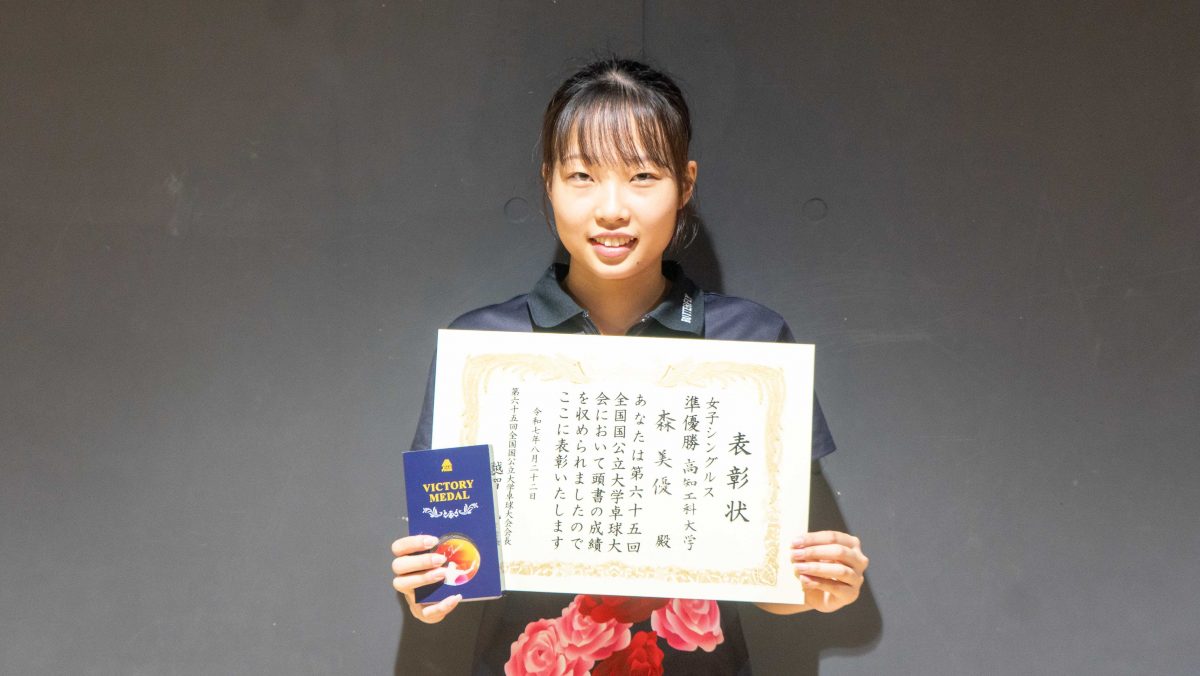 表彰状
女子シングルス
準優勝 高知工科大学
森 美優 殿
あなたは第六十五回
全国国公立大学卓球大
会において頭書の成績
を収められましたので
ここに表彰いたします
令和七年八月二十二日
第六十五回全国国公立大学卓球大会会長
越智
VICTORY
MEDAL
BUTTERFLY